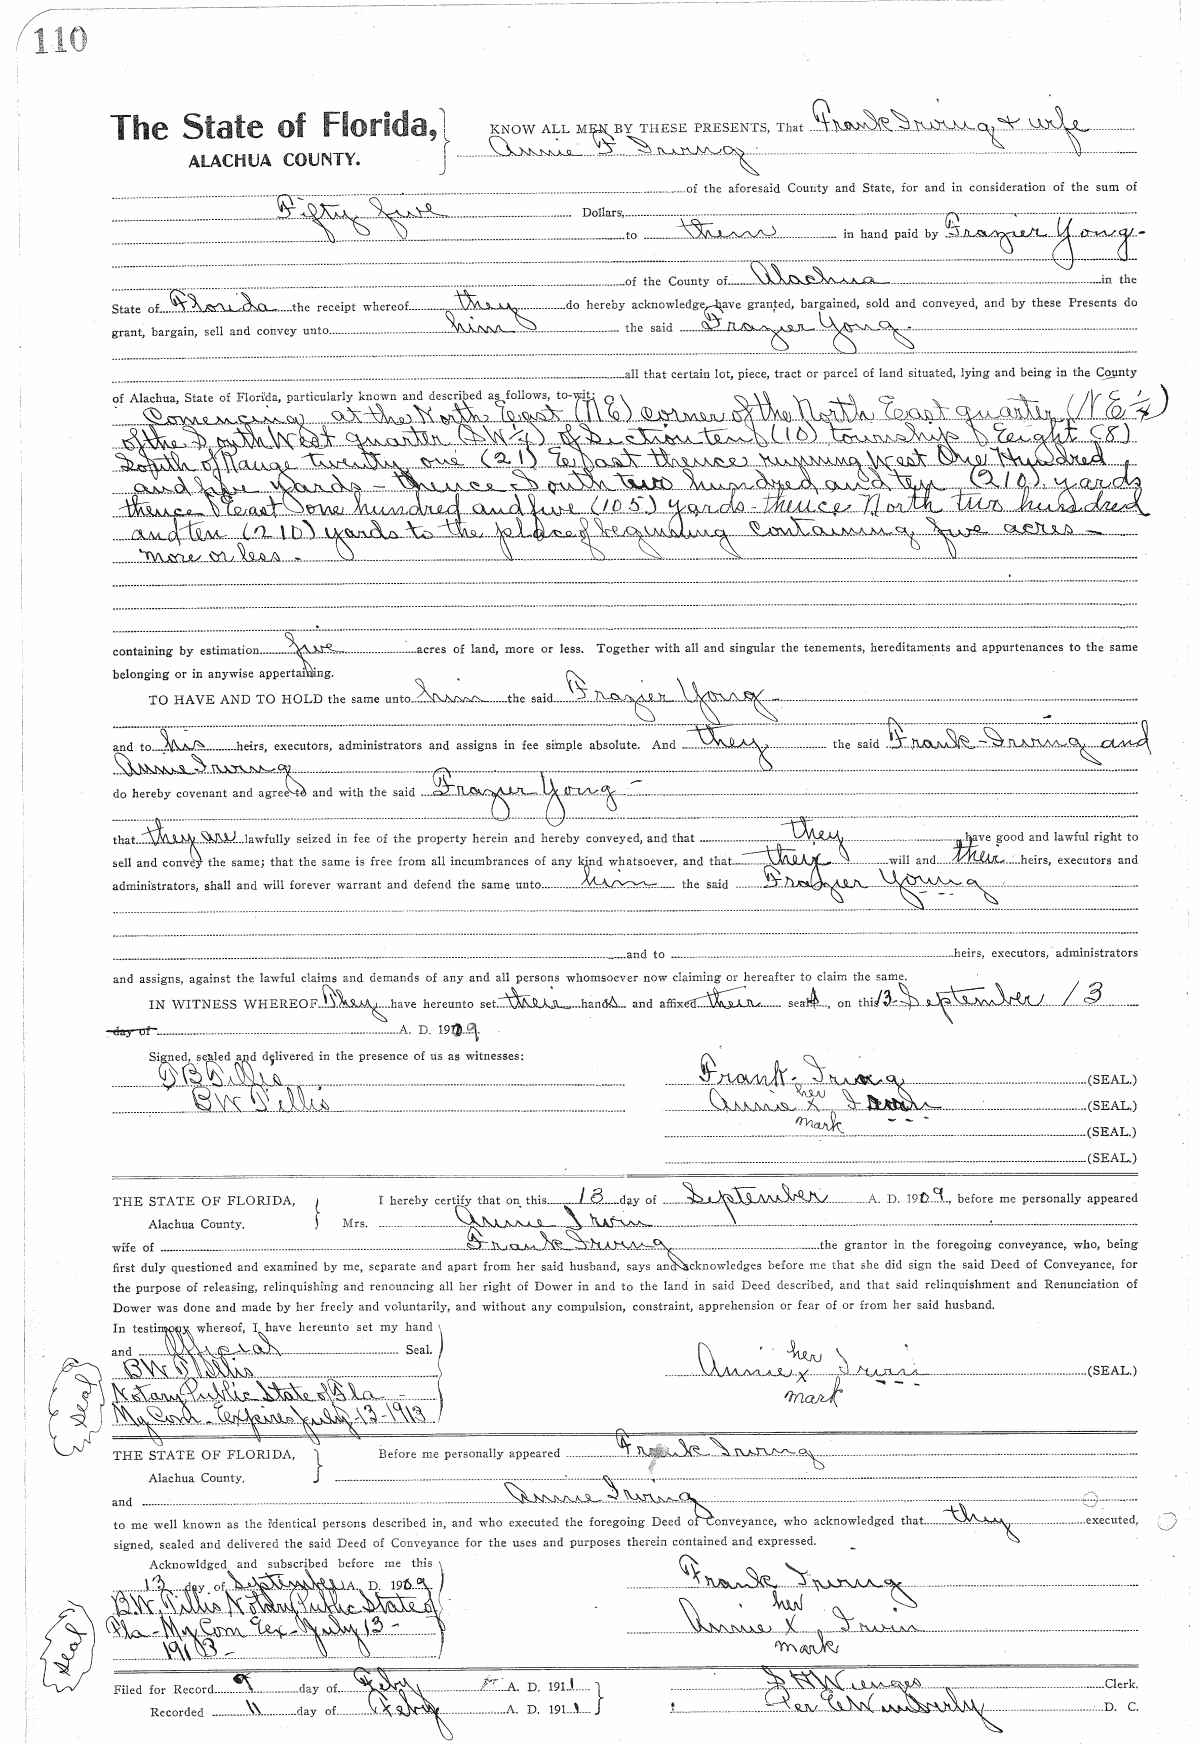 110
The State of Florida,
ALACHUA COUNTY.
KNOW ALL MEN BY THESE PRESENTS, That Frank Irving & wife
Annie F Irving
of the aforesaid County and State, for and in consideration of the sum of
Fifty five Dollars,
to them in hand paid by Frazier Yong-
of the County of Alachua in the
State of Florida the receipt whereof they do hereby acknowledge, have granted, bargained, sold and conveyed, and by these Presents do
grant, bargain, sell and convey unto him the said Frazier Yong.
all that certain lot, piece, tract or parcel of land situated, lying and being in the County
of Alachua, State of Florida, particularly known and described as follows, to-wit:
Comencing at the North East (NE) corner of the North East quarter (NE 1/4)
of the South West quarter (SW 1/4) of Section ten (10) township Eight (8)
South of Range twenty one (21) East thence running west One Hundred
and five yards - thence South two hundred and ten (210) yards
thence East one hundred and five (105) yards - thence North two hundred
and ten (210) yards to the place of beginning Containing five acres -
more or less -
containing by estimation five acres of land, more or less. Together with all and singular the tenements, hereditaments and appurtenances to the same
belonging or in anywise appertaining.
TO HAVE AND TO HOLD the same unto him the said Frazier Yong -
and to his heirs, executors, administrators and assigns in fee simple absolute. And they the said Frank - Irving and
Annie Irving
do hereby covenant and agree to and with the said Frazier Yong -
that they are lawfully seized in fee of the property herein and hereby conveyed, and that they have good and lawful right to
sell and convey the same; that the same is free from all incumbrances of any kind whatsoever, and that they will and their heirs, executors and
administrators, shall and will forever warrant and defend the same unto him the said Frazier Young
and to heirs, executors, administrators
and assigns, against the lawful claims and demands of any and all persons whomsoever now claiming or hereafter to claim the same.
IN WITNESS WHEREOF They have hereunto set their hands and affixed their seals, on this 13 - September 13
day of A. D. 1909.
Signed, sealed and delivered in the presence of us as witnesses:
Frank - Irving (SEAL.)
BW Tillis
her
Annie x Irwin (SEAL.)
mark
(SEAL.)
(SEAL.)
THE STATE OF FLORIDA, I hereby certify that on this 13 day of September A. D. 1909, before me personally appeared
Alachua County. Mrs. Annie Irwin
wife of Frank Irving the grantor in the foregoing conveyance, who, being
first duly questioned and examined by me, separate and apart from her said husband, says and acknowledges before me that she did sign the said Deed of Conveyance, for
the purpose of releasing, relinquishing and renouncing all her right of Dower in and to the land in said Deed described, and that said relinquishment and Renunciation of
Dower was done and made by her freely and voluntarily, and without any compulsion, constraint, apprehension or fear of or from her said husband.
In testimony whereof, I have hereunto set my hand
and official Seal.
BW Tillis
Notary Public State of Fla -
My Com - Expires July - 13 - 1913
Seal
her
Annie x Irwin (SEAL.)
mark
THE STATE OF FLORIDA, Before me personally appeared Frank Irving
Alachua County.
and Annie Irving
to me well known as the identical persons described in, and who executed the foregoing Deed of Conveyance, who acknowledged that they executed,
signed, sealed and delivered the said Deed of Conveyance for the uses and purposes therein contained and expressed.
Acknowldged and subscribed before me this
13 day of September A. D. 1909
B.W. Tillis Notary Public State of
Fla - My Com Ex - July 13 -
1913 -
Seal
Frank Irving
her
Annie X Irwin
mark
Filed for Record 9 day of Feby A. D. 1911 S H Wienges Clerk.
Recorded 11 day of Feby A. D. 1911 Per E Wimberly D. C.